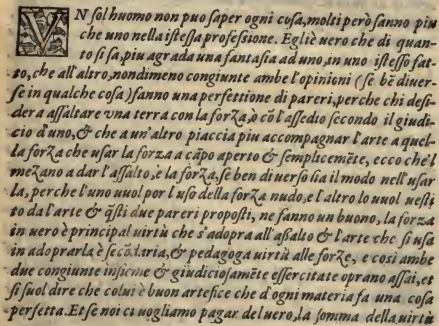 VN sol huomo non puo saper ogni cosa, molti però sanno piu
che uno nella istessa professione. Egliè vero che di quan-
to si sa, piu agrada una fantasia ad uno, in uno istesso fat-
to, che all'altro, nondimeno congiunte ambe l'opinioni (se bē diuer-
se in qualche cosa) fanno una perfettione di pareri, perche chi desi-
dera assaltare vna terra con la forza, o cō l'assedio secondo il giudi-
cio d'uno, & che a un'altro piaccia piu accompagnar l'arte a quel-
la forza che usar la forza a cāpo aperto & semplicemēte, ecco che'l
mezano a dar l'assalto, e la forza, se ben diuerso sia il modo nell'usar
la, perche l'uno vuol por l'uso della forza nudo, e l'altro lo vuol uesti
to da l'arte & q̄sti due pareri proposti, ne fanno un buono, la forza
in uero è principal uirtù che s'adopra all'assalto & l'arte che si usa
in adoprarla è secōtaria, & pedagoga uirtù alle forze, e così ambe
due congiunte insieme & giudiciosamēte essercitate oprano assai, et
si suol dire che colui è buon artefice che d'ogni materia fa una cosa
perfetta. Et se noi ci uogliamo pagar del uero, la somma della uirtù